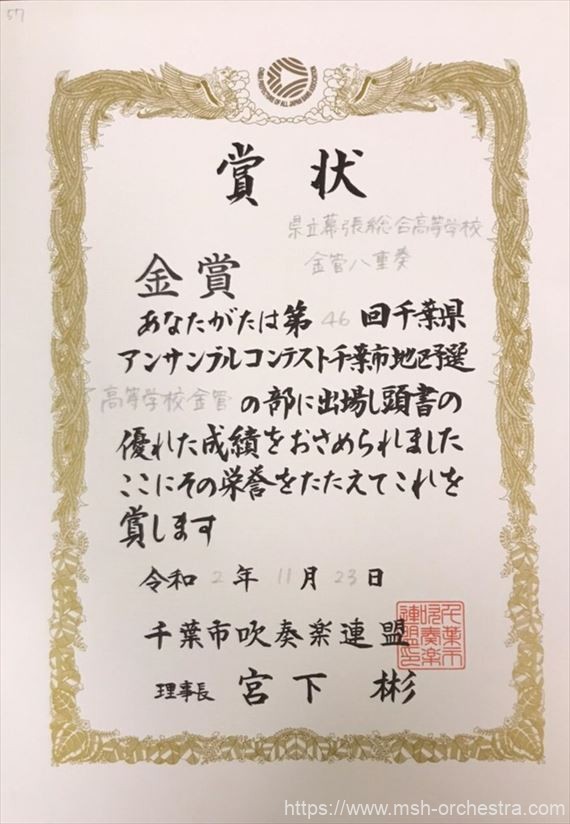 57
賞状
県立幕張総合高等学校
金管八重奏
金賞
あなたがたは第46回千葉県
アンサンブルコンテスト千葉市地区予選
高等学校金管の部に出場し頭書の
優れた成績をおさめられました
ここにその栄誉をたたえてこれを
賞します
令和2年11月23日
千葉市吹奏楽連盟
理事長 宮下 彬
千葉市
吹奏楽
連盟印
https://www.msh-orchestra.com